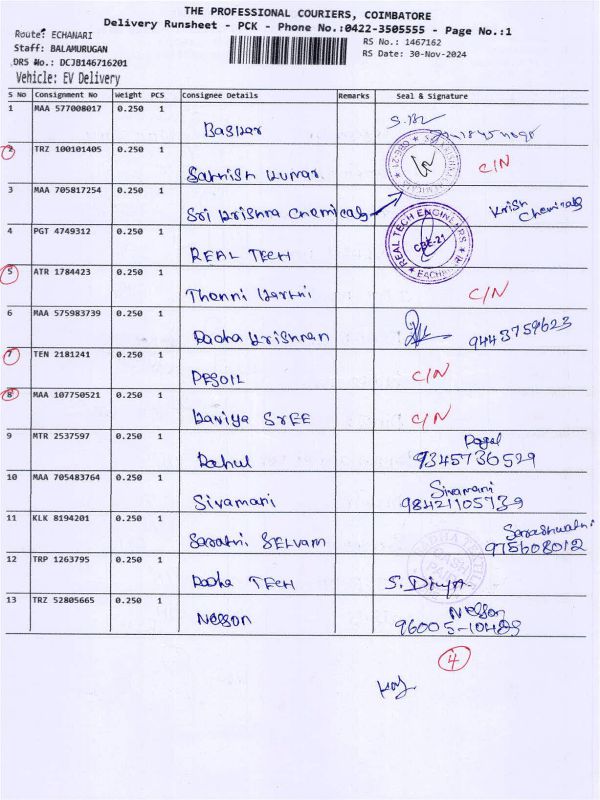 THE PROFESSIONAL COURIERS, COIMBATORE
Delivery Runsheet - PCK - Phone No.:0422-3505555 - Page No.:1
Route: ECHANARI
Staff: BALAMURUGAN
DRS No.: DCJB146716201
Vehicle: EV Delivery
RS No.: 1467162
RS Date: 30-Nov-2024
S No Consignment No Weight PCS Consignee Details Remarks Seal & Signature
1 MAA 577008017 0.250 1 Baskar
2 TRZ 100101405 0.250 1 Sathish Kumar C/N
3 MAA 705817254 0.250 1 Sri Krishna Chemicals Krish Chemicals
4 PGT 4749312 0.250 1 REAL TECH REAL TECH ENGINEERS CBE-21
5 ATR 1784423 0.250 1 C/N
6 MAA 575983739 0.250 1 Radha Krishnan 9443759623
7 TEN 2181241 0.250 1 C/N
8 MAA 107750521 0.250 1 Kaviya SREE C/N
9 MTR 2537597 0.250 1 Rahul 9345736529
10 MAA 705483764 0.250 1 Sivamani Sivamani
11 KLK 8194201 0.250 1
12 TRP 1263795 0.250 1 Radha TECH S. Divya
13 TRZ 52805665 0.250 1 Nelson Nelson
4